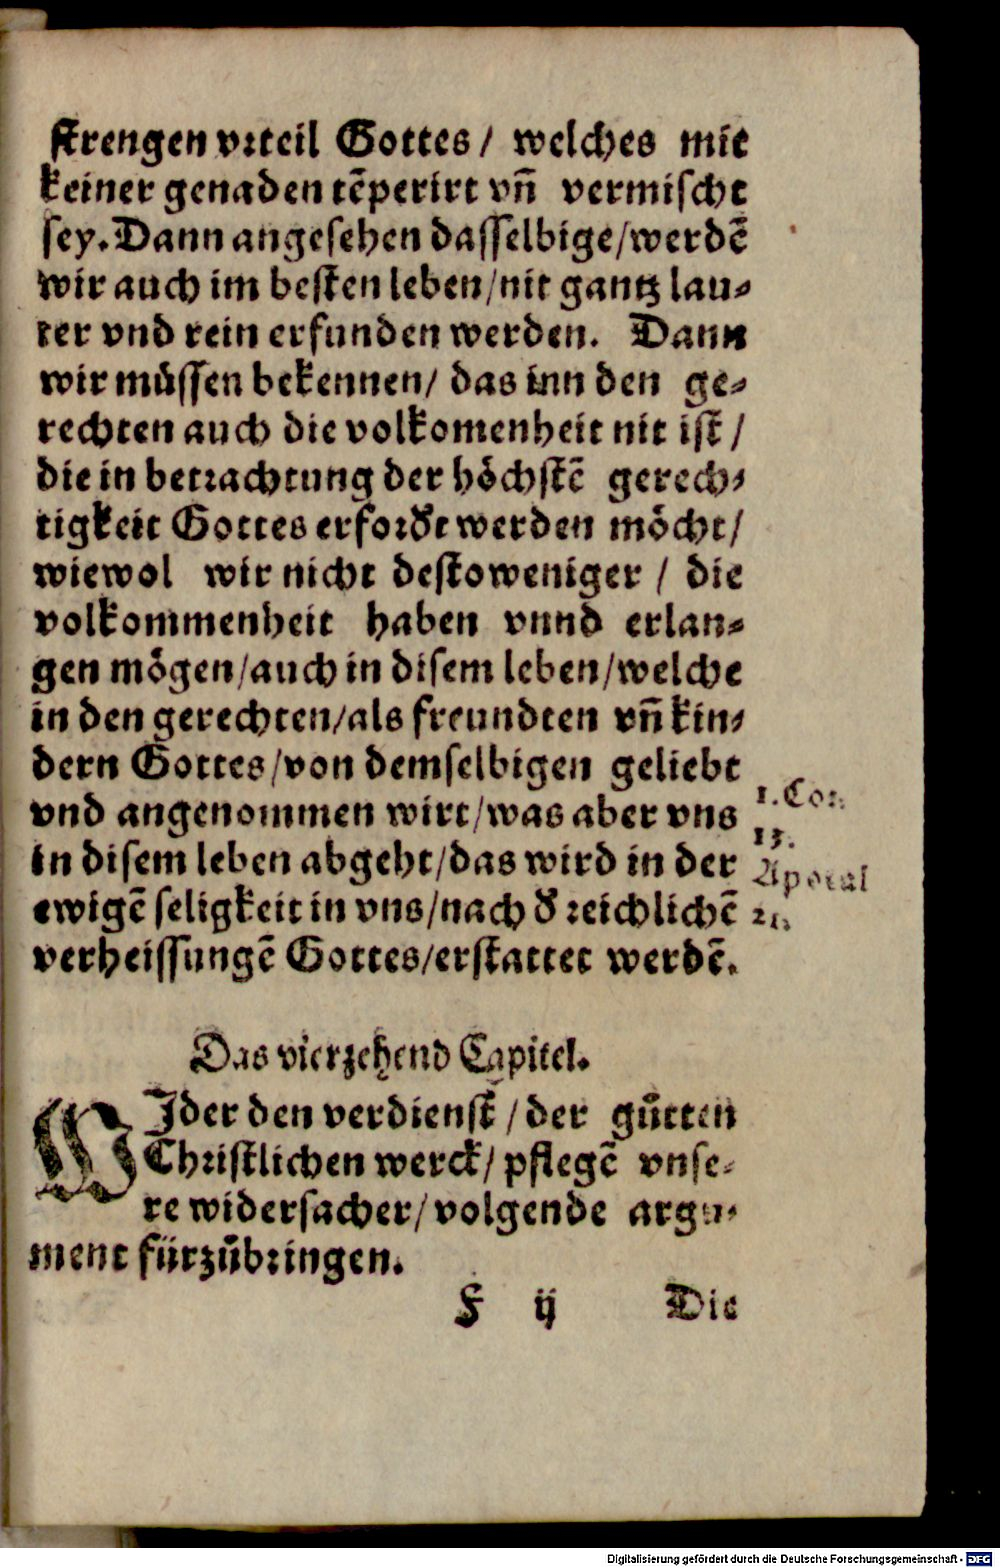 strengen vrteil Gottes / welches mit
keiner genaden tẽperirt vñ vermischt
sey. Dann angesehen dasselbige / werdẽ
wir auch im besten leben / nit gantz lau-
ter vnd rein erfunden werden. Dann
wir müssen bekennen / das inn den ge-
rechten auch die volkomenheit nit ist /
die in betrachtung der höchstẽ gerech-
tigkeit Gottes erfordt werden möcht /
wiewol wir nicht destoweniger / die
volkommenheit haben vnnd erlan-
gen mögen / auch in disem leben / welche
in den gerechten / als freundten vñ kin-
dern Gottes / von demselbigen geliebt
vnd angenommen wirt / was aber vns
in disem leben abgeht / das wird in der
ewigẽ seligkeit in vns / nach d reichlichẽ
verheissungẽ Gottes / erstattet werdẽ.
1. Cor.
13.
Apocal
21.
Das vierzehend Capitel.
WJder den verdienst / der gůtten
Christlichen werck / pflegẽ vnse-
re widersacher / volgende argu-
ment fürzůbringen.
F ij Die
Digitalisierung gefördert durch die Deutsche Forschungsgemeinschaft - DFG